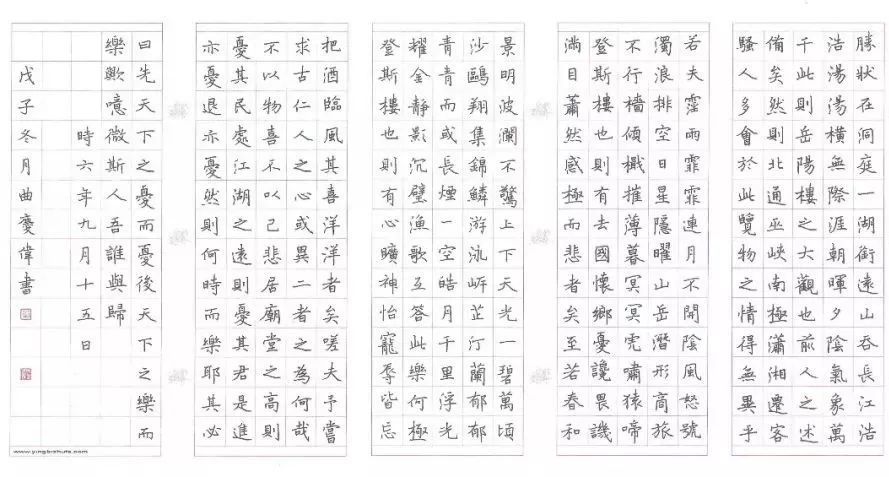 勝狀在洞庭一湖銜遠山吞長江浩
浩湯湯橫無際涯朝暉夕陰氣象萬
千此則岳陽樓之大觀也前人之述
備矣然則北通巫峽南極瀟湘遷客
騷人多會於此覽物之情得無異乎
若夫霪雨霏霏連月不開陰風怒號
濁浪排空日星隱曜山岳潛形商旅
不行檣傾檝摧薄暮冥冥虎嘯猿啼
登斯樓也則有去國懷鄉憂讒畏譏
滿目蕭然感極而悲者矣至若春和
景明波瀾不驚上下天光一碧萬頃
沙鷗翔集錦鱗游泳岸芷汀蘭郁郁
青青而或長煙一空皓月千里浮光
耀金靜影沉璧漁歌互答此樂何極
登斯樓也則有心曠神怡寵辱皆忘
把酒臨風其喜洋洋者矣嗟夫予嘗
求古仁人之心或異二者之為何哉
不以物喜不以己悲居廟堂之高則
憂其民處江湖之遠則憂其君是進
亦憂退亦憂然則何時而樂耶其必
曰先天下之憂而憂後天下之樂而
樂歟噫微斯人吾誰與歸
時六年九月十五日
戊子冬月曲慶偉書
www.yingbishufa.com